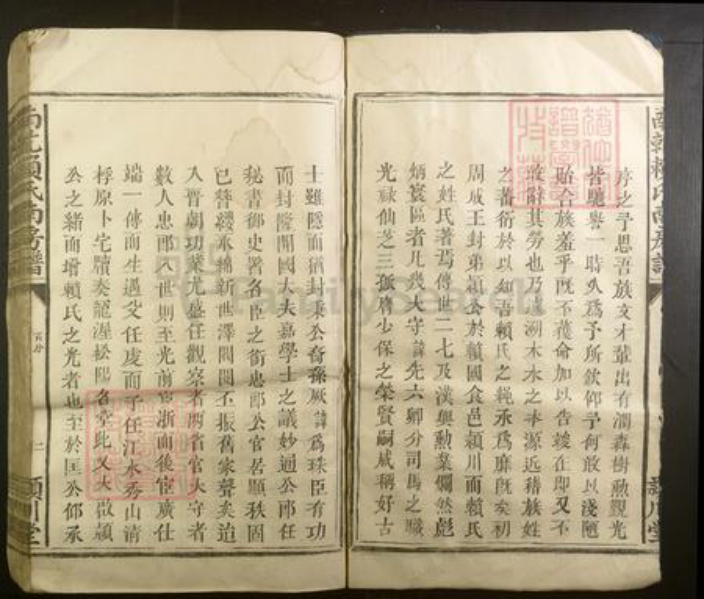 序之予思吾族文才輩出有潤森樹勲觀光
皆馳譽一時久爲予所欽仰予何敢以淺陋
貽合族羞乎既不獲命加以告竣在即又不
敢辭其勞也乃爲溯木水之本源近稽族姓
之蕃衍於以知吾賴氏之
周成王封弟穎公於賴國食邑穎川而賴氏
之姓氏著焉傳世二十七及漢興勲業爛然彪
炳寰區者凡幾太守諱先六卿分司馬之職
光祿仙芝三孤膺少保之榮賢嗣咸稱好古
士雖隱而猶封秉公裔孫厥諱爲珠臣有功
而封隆開國大夫嘉學士之議妙通公郎任
秘書御史署名臣之銜忠郎公官居顯秩固
已簪纓承錦新世澤閥閱丕振舊家聲矣迨
入晉朝功業尤盛任觀察者兩省官太守者
數人忠郎八世則至光前宦浙而後宦廣仕
端一傳而生遇父任虔而子任江水秀山清
桴原卜宅牘奏龍渥松陽名堂此又大啟穎
公之緒而增賴氏之光者也至於匡公仰承
南房譜
穎川堂